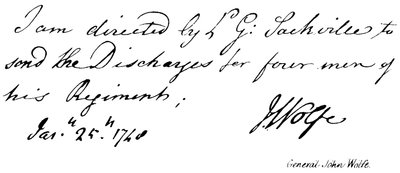 I am directed by Ld G: Sackville to
send the Discharges for four men of
his Regiment;
Jan.y 25.th 1748
J Wolfe
General John Wolfe.